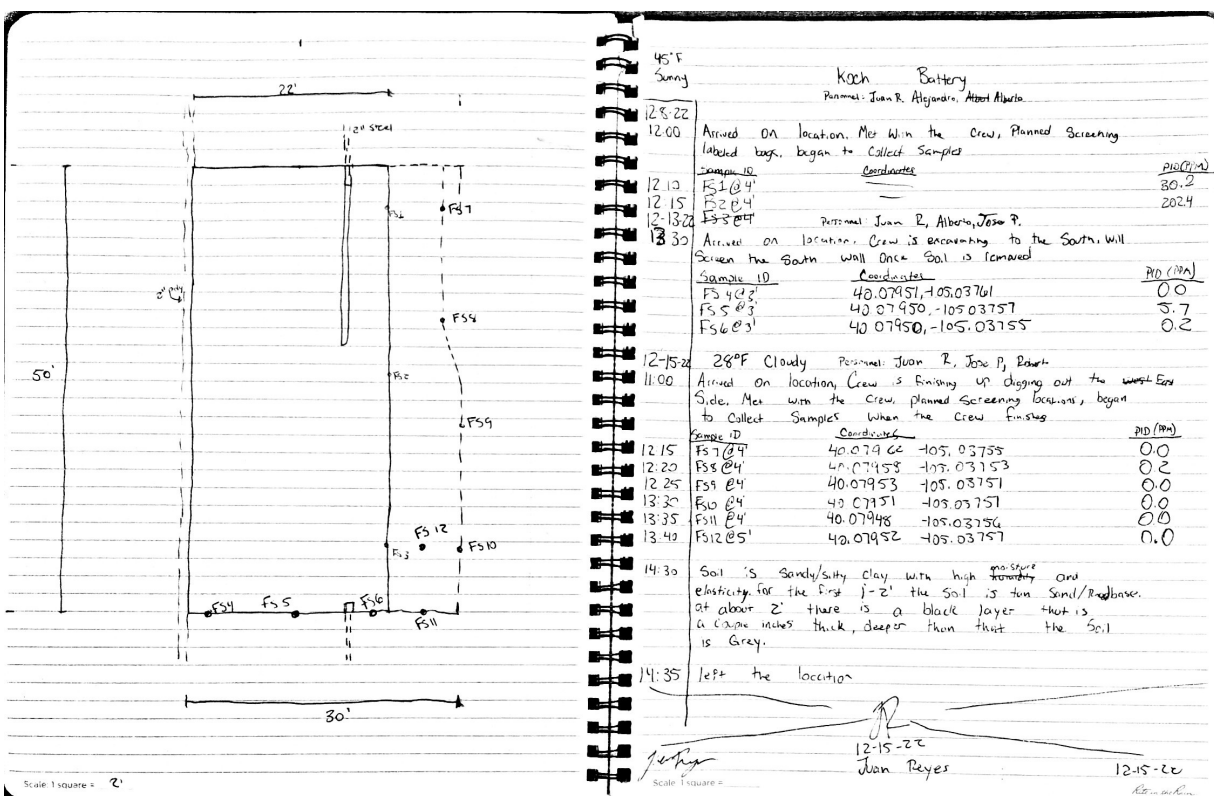 22'
12" Steel
FS1
FS7
2" poly
FS8
50'
FS2
FS9
FS12
FS3
FS10
FS4
FS5
FS6
FS11
30'
Scale: 1 square = 2'
45°F
Sunny
Koch Battery
Personnel: Juan R. Alejandro, Albert Alberto
12-8-22
12:00 Arrived On location. Met With the Crew, Planned Screening
labeled bags, began to Collect Samples
Sample ID Coordinates PID (PPM)
12:10 FS1@4' 30.2
12:15 FS2@4' 202.4
12-13-22 FS3@4' Personnel: Juan R, Alberto, Jose P.
13:30 Arrived on location, Crew is excavating to the South. Will
Screen the South Wall Once Soil is removed
Sample ID Coordinates PID (PPM)
FS4@3' 40.07951, -105.03761 0.0
FS5@3' 40.07950, -105.03757 5.7
FS6@3' 40.07950, -105.03755 0.2
12-15-22 28°F Cloudy Personnel: Juan R, Jose P, Robert
11:00 Arrived On location, Crew is finishing up digging out the west East
Side. Met with the Crew, planned Screening locations, began
to Collect Samples When the Crew finishes
Sample ID Coordinates PID (PPM)
12:15 FS7@4' 40.07962 -105.03755 0.0
12:20 FS8@4' 40.07958 -105.03753 0.2
12:25 FS9 @4' 40.07953 -105.03751 0.0
13:30 FS10 @4' 40.07951 -105.03751 0.0
13:35 FS11 @4' 40.07948 -105.03756 0.0
13:40 FS12@5' 40.07952 -105.03757 0.0
14:30 Soil is Sandy/silty clay with high humidity moisture and
elasticity. for the first 1-2' the Soil is tan Sand/Roadbase.
at about 2' there is a black layer that is
a couple inches thick, deeper than that the Soil
is Grey.
14:35 left the location
JR
12-15-22
Juan Reyes
12-15-22
Scale: 1 square =
Rite in the Rain